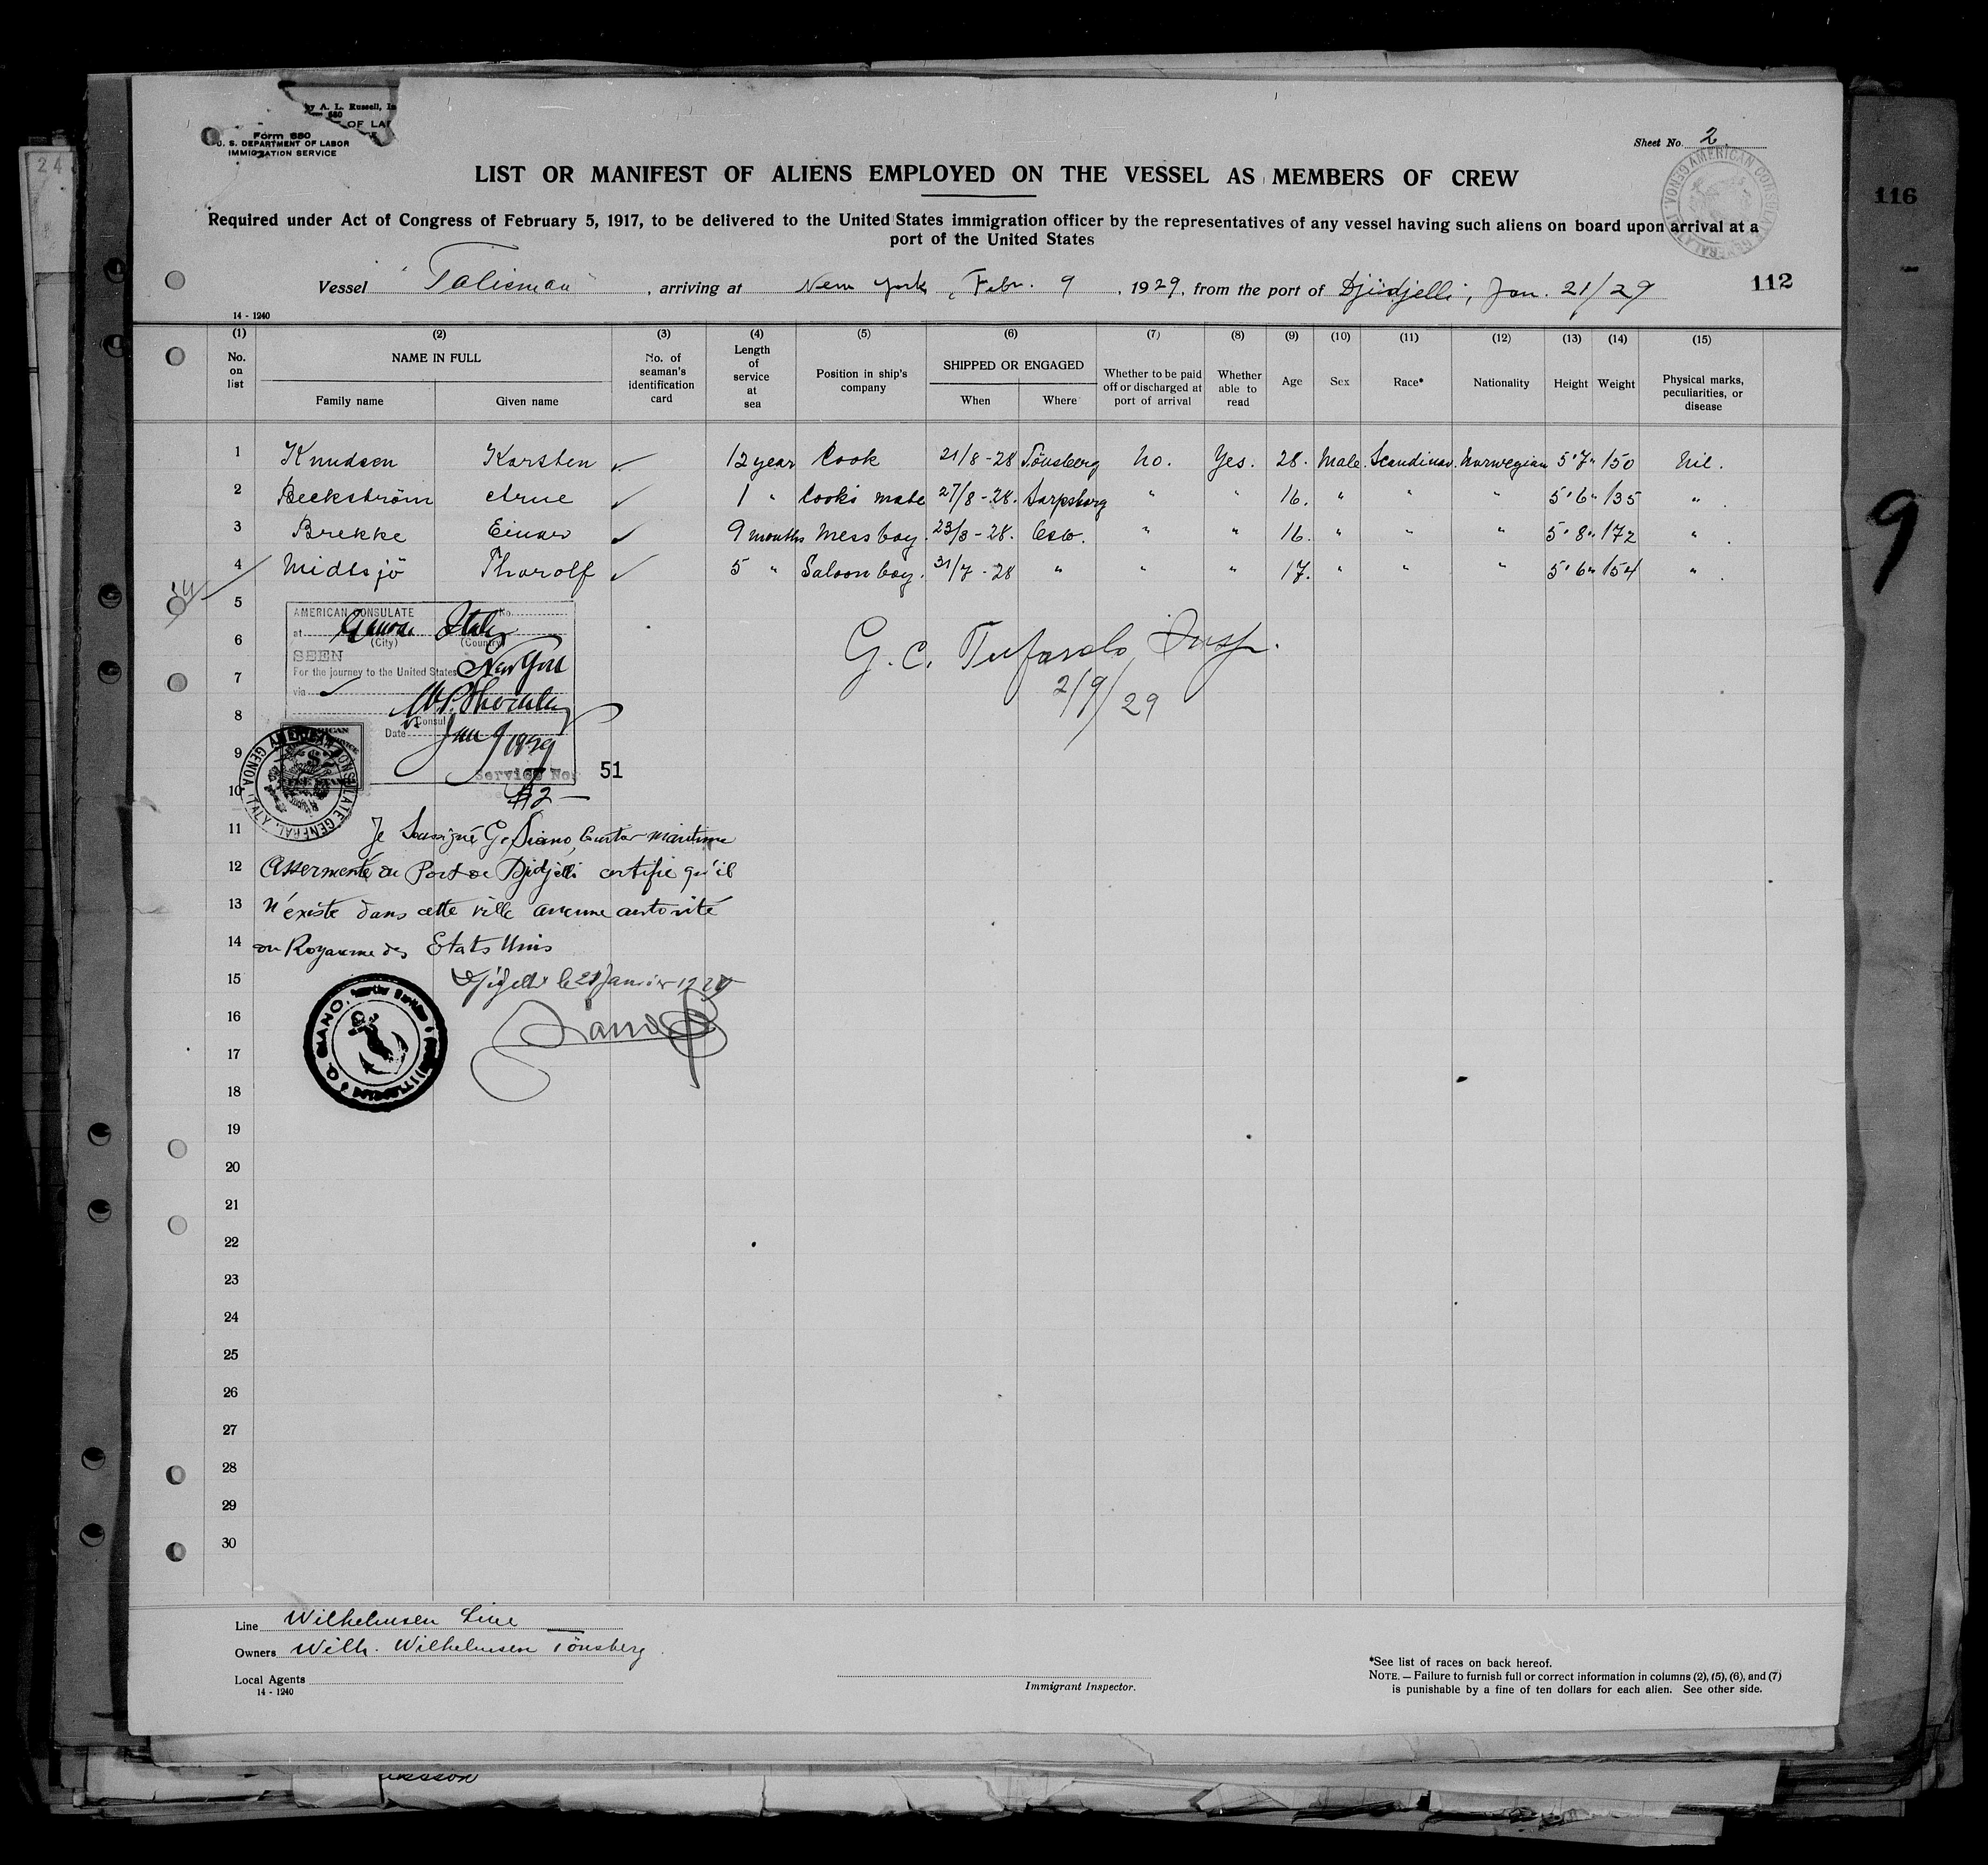 by A. L. Russell, In
680
OF LA
Form 680
U. S. DEPARTMENT OF LABOR
IMMIGRATION SERVICE
Sheet No. 2
LIST OR MANIFEST OF ALIENS EMPLOYED ON THE VESSEL AS MEMBERS OF CREW
Required under Act of Congress of February 5, 1917, to be delivered to the United States immigration officer by the representatives of any vessel having such aliens on board upon arrival at a
port of the United States
AMERICAN CONSULATE GENERAL GENOA, ITALY
116
112
24
9
Vessel "Talisman", arriving at New York, Febr. 9, 1929, from the port of Djidjelli, Jan. 21/29
14 - 1240
(1) (2) (3) (4) (5) (6) (7) (8) (9) (10) (11) (12) (13) (14) (15)
No. on list NAME IN FULL Family name Given name No. of seaman's identification card Length of service at sea Position in ship's company SHIPPED OR ENGAGED When Where Whether to be paid off or discharged at port of arrival Whether able to read Age Sex Race* Nationality Height Weight Physical marks, peculiarities, or disease
1 Knudsen Karsten ✓ 12 year Cook 21/8-28 Tönsberg No. Yes. 28. Male. Scandinav. Norwegian 5'7" 150 Nil.
2 Beckström Arne ✓ 1 " Cooks mate 27/8-28. Sarpsborg " " 16. " " " 5'6" 135 "
3 Brekke Einar ✓ 9 months Mess boy. 23/3-28. Oslo. " " 16. " " " 5'8" 172 "
4 Midtsjö Thorolf ✓ 5 " Saloon boy. 31/7-28 " " " 17. " " " 5'6" 154 "
5
6
7
8
9
10
AMERICAN CONSULATE No.
at Genoa Italy
(City) (Country)
SEEN
For the journey to the United States New York
via
Consul
Date Jan 9 1929
Service No. 51
#2 —
AMERICAN CONSULATE GENERAL. GENOA, ITALY
G. C. Tufarolo Insp.
2/9/29
11 Je Soussigné G. Siano, Courtier maritime
12 Assermenté au Port de Djidjelli certifie qu'il
13 n'éxiste dans cette ville aucune autorité
14 du Royaume des Etats Unis
15 Djidjelli le 21 Janvier 1929
16
17
G. SIANO
18
19
20
21
22
23
24
25
26
27
28
29
30
Line Wilhelmsen Line
Owners Wilh. Wilhelmsen Tönsberg.
Local Agents
14 - 1240
Immigrant Inspector.
*See list of races on back hereof.
NOTE. — Failure to furnish full or correct information in columns (2), (5), (6), and (7)
is punishable by a fine of ten dollars for each alien. See other side.